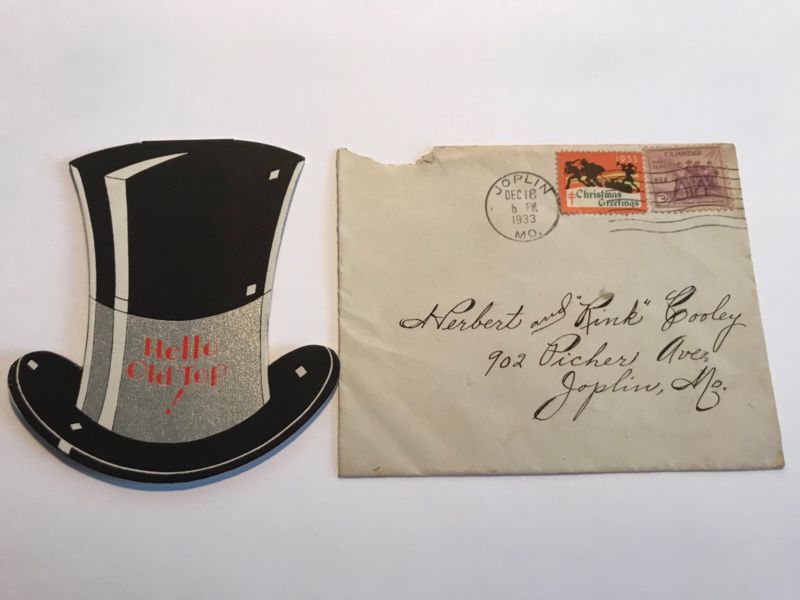 Hello
Old Top
!
JOPLIN
DEC 18
6 PM
1933
MO.
1933
Christmas
Greetings
U.S. POSTAGE
NRA
3¢
Herbert and "Rink" Cooley
902 Picher Ave.
Joplin, Mo.